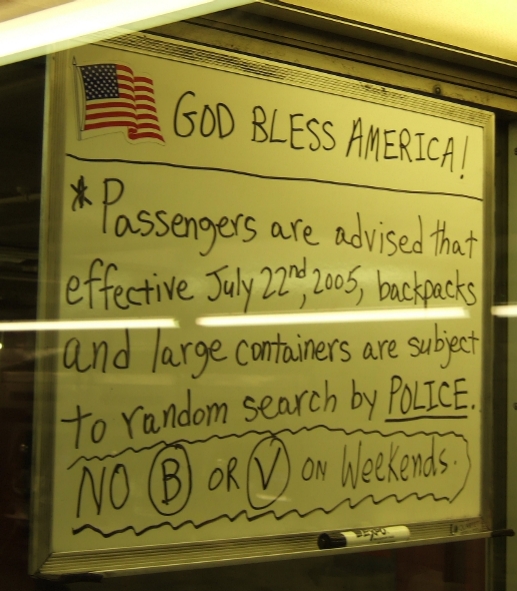 GOD BLESS AMERICA!
*Passengers are advised that
effective July 22nd, 2005, backpacks
and large containers are subject
to random search by POLICE.
NO B OR V ON Weekends.
EXPO